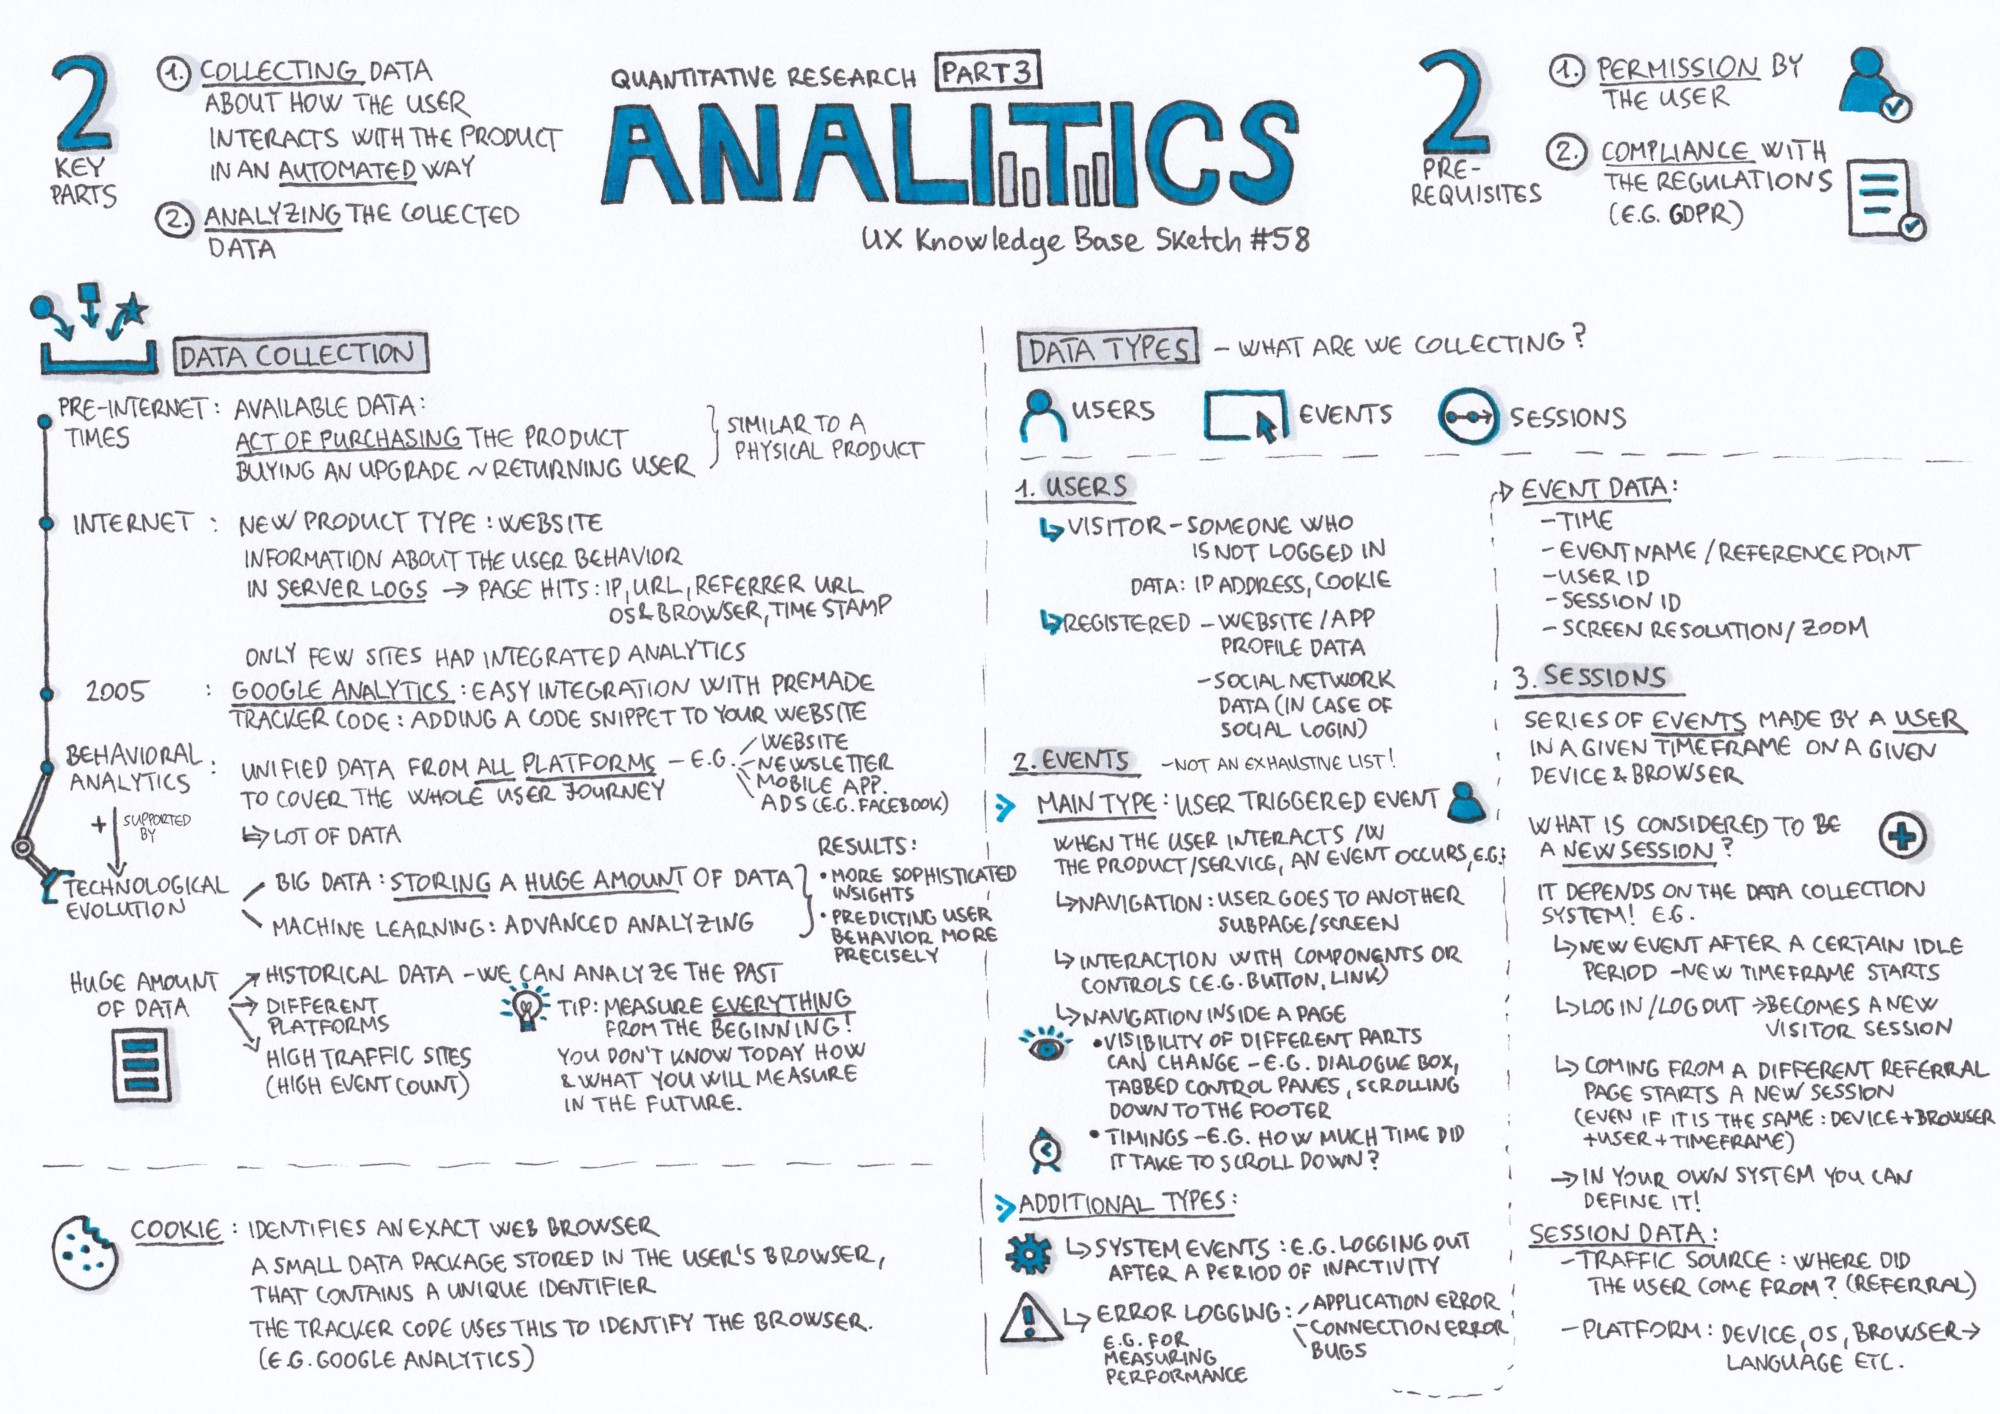 2
KEY
PARTS
1. COLLECTING DATA
ABOUT HOW THE USER
INTERACTS WITH THE PRODUCT
IN AN AUTOMATED WAY
2. ANALYZING THE COLLECTED
DATA
QUANTITATIVE RESEARCH PART 3
ANALITICS
UX Knowledge Base Sketch #58
2
PRE-
REQUISITES
1. PERMISSION BY
THE USER
2. COMPLIANCE WITH
THE REGULATIONS
(E.G. GDPR)
DATA COLLECTION
PRE-INTERNET : AVAILABLE DATA:
TIMES
ACT OF PURCHASING THE PRODUCT
BUYING AN UPGRADE ~ RETURNING USER
SIMILAR TO A
PHYSICAL PRODUCT
INTERNET : NEW PRODUCT TYPE : WEBSITE
INFORMATION ABOUT THE USER BEHAVIOR
IN SERVER LOGS → PAGE HITS : IP, URL, REFERRER URL
OS & BROWSER, TIME STAMP
ONLY FEW SITES HAD INTEGRATED ANALYTICS
2005 : GOOGLE ANALYTICS : EASY INTEGRATION WITH PREMADE
TRACKER CODE : ADDING A CODE SNIPPET TO YOUR WEBSITE
BEHAVIORAL
ANALYTICS : UNIFIED DATA FROM ALL PLATFORMS – E.G.
TO COVER THE WHOLE USER JOURNEY
WEBSITE
NEWSLETTER
MOBILE APP.
ADS (E.G. FACEBOOK)
↳ LOT OF DATA
+ SUPPORTED
BY
TECHNOLOGICAL
EVOLUTION
BIG DATA : STORING A HUGE AMOUNT OF DATA
MACHINE LEARNING : ADVANCED ANALYZING
RESULTS:
• MORE SOPHISTICATED
INSIGHTS
• PREDICTING USER
BEHAVIOR MORE
PRECISELY
HUGE AMOUNT
OF DATA
HISTORICAL DATA – WE CAN ANALYZE THE PAST
DIFFERENT
PLATFORMS
HIGH TRAFFIC SITES
(HIGH EVENT COUNT)
TIP: MEASURE EVERYTHING
FROM THE BEGINNING!
YOU DON'T KNOW TODAY HOW
& WHAT YOU WILL MEASURE
IN THE FUTURE.
COOKIE : IDENTIFIES AN EXACT WEB BROWSER
A SMALL DATA PACKAGE STORED IN THE USER'S BROWSER,
THAT CONTAINS A UNIQUE IDENTIFIER
THE TRACKER CODE USES THIS TO IDENTIFY THE BROWSER.
(E.G. GOOGLE ANALYTICS)
DATA TYPES – WHAT ARE WE COLLECTING?
USERS
EVENTS
SESSIONS
1. USERS
↳ VISITOR – SOMEONE WHO
IS NOT LOGGED IN
DATA: IP ADDRESS, COOKIE
↳ REGISTERED – WEBSITE / APP
PROFILE DATA
– SOCIAL NETWORK
DATA (IN CASE OF
SOCIAL LOGIN)
2. EVENTS – NOT AN EXHAUSTIVE LIST!
MAIN TYPE : USER TRIGGERED EVENT
WHEN THE USER INTERACTS /W
THE PRODUCT/SERVICE, AN EVENT OCCURS, E.G:
↳ NAVIGATION : USER GOES TO ANOTHER
SUBPAGE/SCREEN
↳ INTERACTION WITH COMPONENTS OR
CONTROLS (E.G. BUTTON, LINK)
↳ NAVIGATION INSIDE A PAGE
• VISIBILITY OF DIFFERENT PARTS
CAN CHANGE – E.G. DIALOGUE BOX,
TABBED CONTROL PANES, SCROLLING
DOWN TO THE FOOTER
• TIMINGS – E.G. HOW MUCH TIME DID
IT TAKE TO SCROLL DOWN?
ADDITIONAL TYPES:
↳ SYSTEM EVENTS : E.G. LOGGING OUT
AFTER A PERIOD OF INACTIVITY
↳ ERROR LOGGING :
E.G. FOR
MEASURING
PERFORMANCE
APPLICATION ERROR
CONNECTION ERROR
BUGS
EVENT DATA:
– TIME
– EVENT NAME / REFERENCE POINT
– USER ID
– SESSION ID
– SCREEN RESOLUTION / ZOOM
3. SESSIONS
SERIES OF EVENTS MADE BY A USER
IN A GIVEN TIMEFRAME ON A GIVEN
DEVICE & BROWSER
WHAT IS CONSIDERED TO BE
A NEW SESSION?
IT DEPENDS ON THE DATA COLLECTION
SYSTEM! E.G.
↳ NEW EVENT AFTER A CERTAIN IDLE
PERIOD – NEW TIMEFRAME STARTS
↳ LOG IN / LOG OUT → BECOMES A NEW
VISITOR SESSION
↳ COMING FROM A DIFFERENT REFERRAL
PAGE STARTS A NEW SESSION
(EVEN IF IT IS THE SAME : DEVICE + BROWSER
+ USER + TIMEFRAME)
→ IN YOUR OWN SYSTEM YOU CAN
DEFINE IT!
SESSION DATA:
– TRAFFIC SOURCE : WHERE DID
THE USER COME FROM? (REFERRAL)
– PLATFORM : DEVICE, OS, BROWSER →
LANGUAGE ETC.